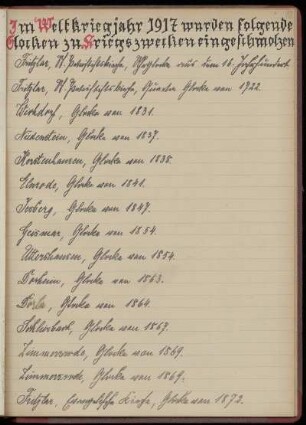 Im Weltkriegjahr 1917 wurden folgende
Glocken zu Kriegszwecken eingeschmolzen
Fritzlar, Glocke aus dem 16. Jahrhundert
Fritzlar, Glocke von 1722.
Glocke von 1831.
Niedenstein, Glocke von 1837.
Glocke von 1838.
Elnrode, Glocke von 1841.
Jesberg, Glocke von 1847.
Geismar, Glocke von 1854.
Uttershausen, Glocke von 1854.
Dorheim, Glocke von 1863.
Dorla, Glocke von 1864.
Schlierbach, Glocke von 1867.
Zimmersrode, Glocke von 1869.
Zimmersrode, Glocke von 1869.
Fritzlar, Evangelische Kirche, Glocke von 1873.